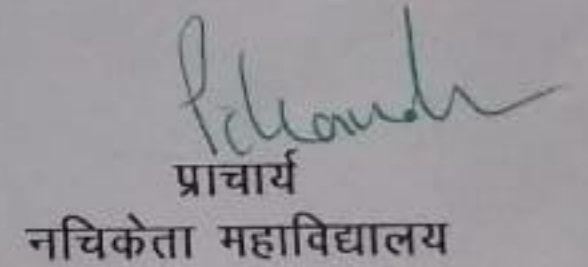 प्राचार्य
नचिकेता महाविद्यालय